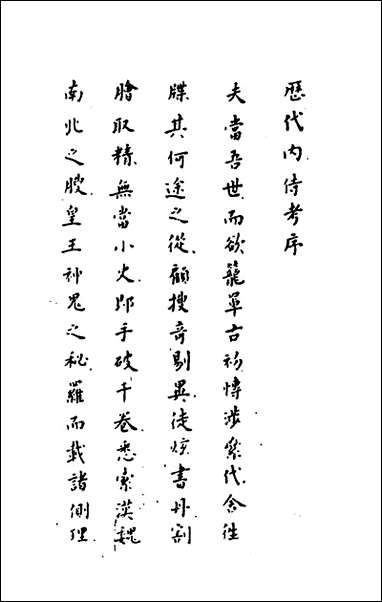 歷代內侍考序
夫當吾世而欲籠罩古初博涉累代舍往
牒其何途之從顧搜奇剔異徒炫書丹割
膾取精無當小火卽手破千卷悉索漢魏
南北之腴皇王神鬼之秘羅而載諸側理